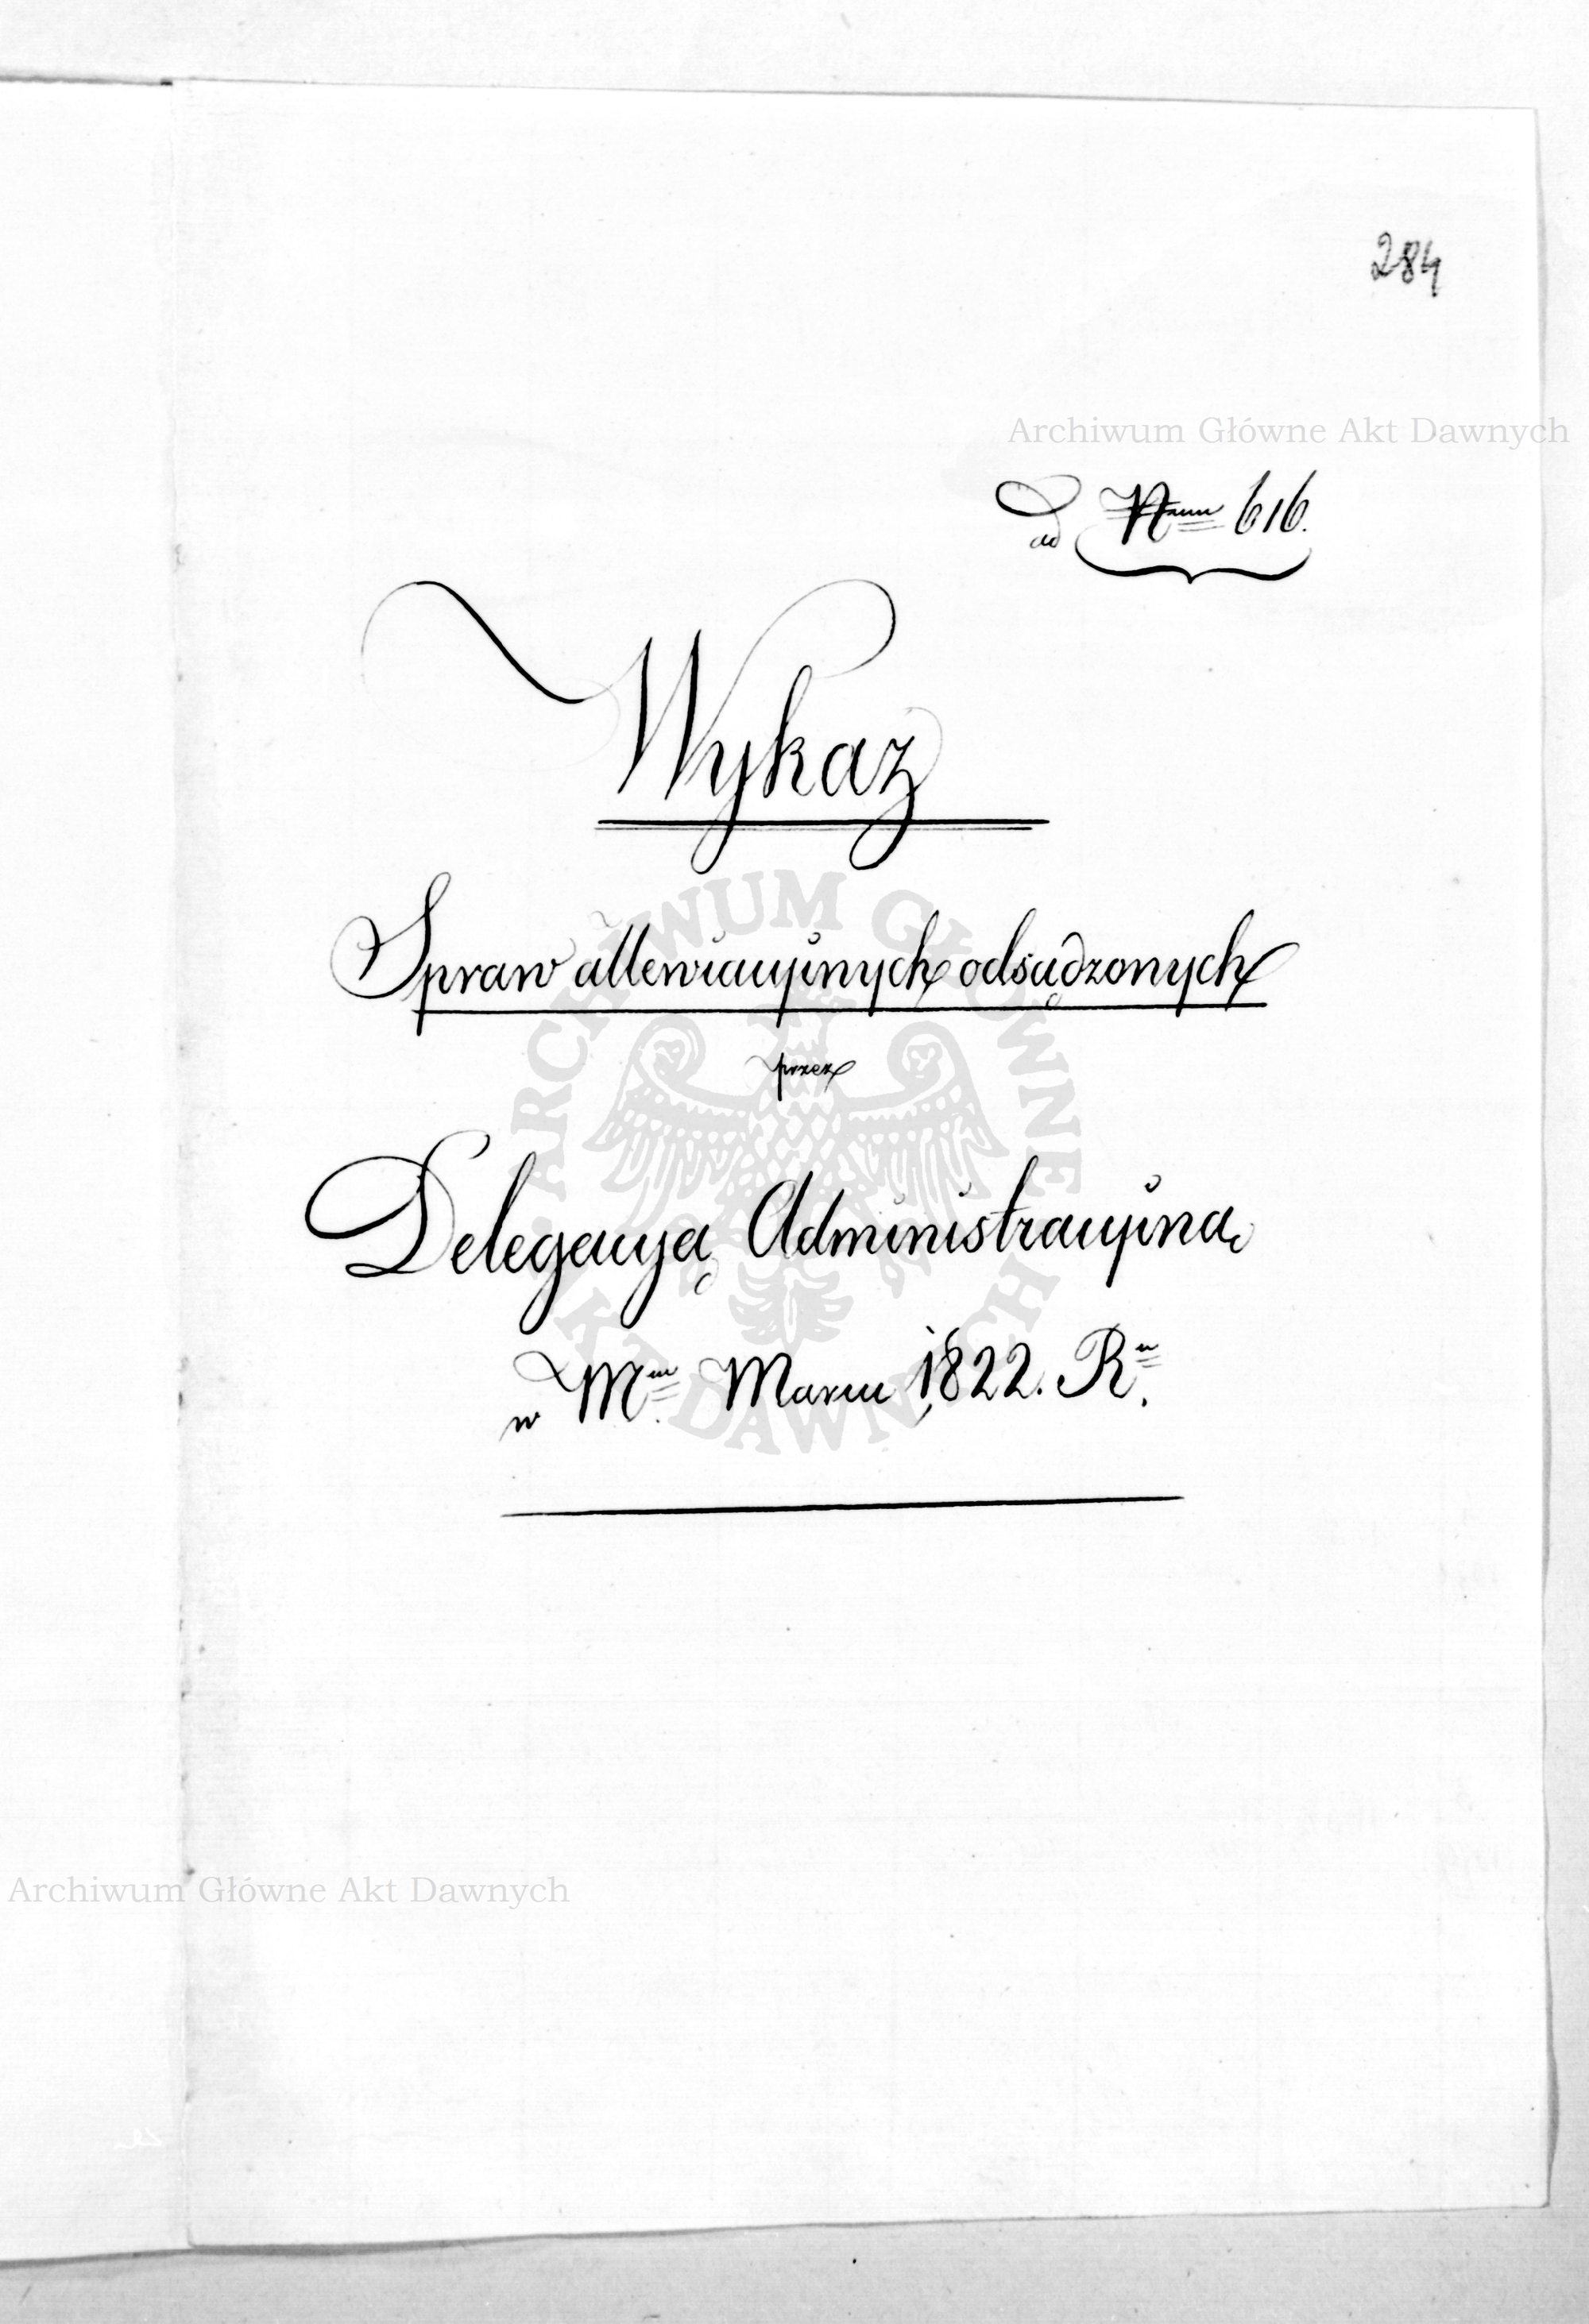 284
Archiwum Główne Akt Dawnych
ad Nrum 616.
Wykaz
Spraw allewiacyinych odsądzonych
przez
Delegacyą Administracyiną
w Mcu Marcu 1822. Ru.
ARCHIWUM GŁÓWNE
AKT DAWNYCH
Archiwum Główne Akt Dawnych